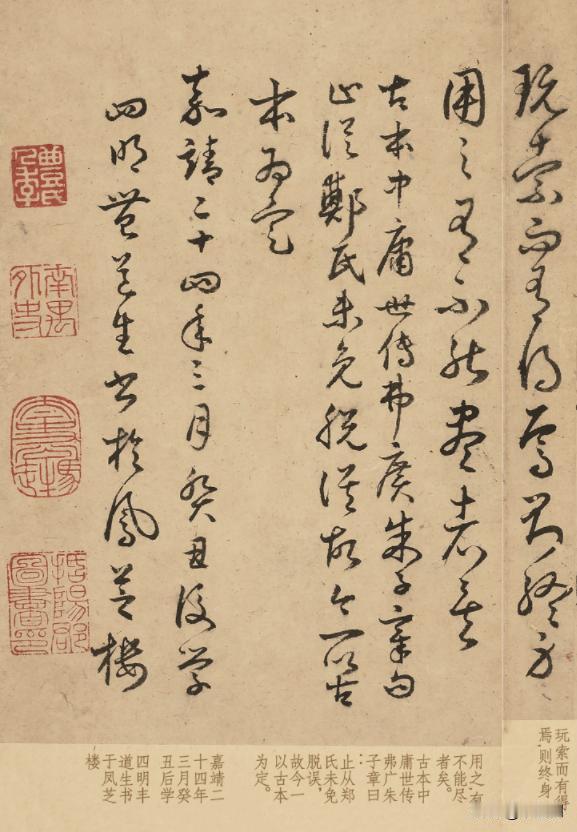 玩索而有得焉則終身
用之有不能盡者矣
古本中庸世傳弗廣朱子章句
止從鄭氏未免脫誤故今一以古
本為定
嘉靖二十四年三月癸丑後學
四明豐道生書於鳳芝樓
南禺外史
玩索而有得
焉，则终身
用之，有
不能尽
者矣。
古本中
庸世传
弗广朱
子章曰
：
止从郑
氏未免
脱误，
故今一
以古本
为定。
嘉靖二
十四年
三月癸
丑后学
四明丰
道生书
于凤芝
楼